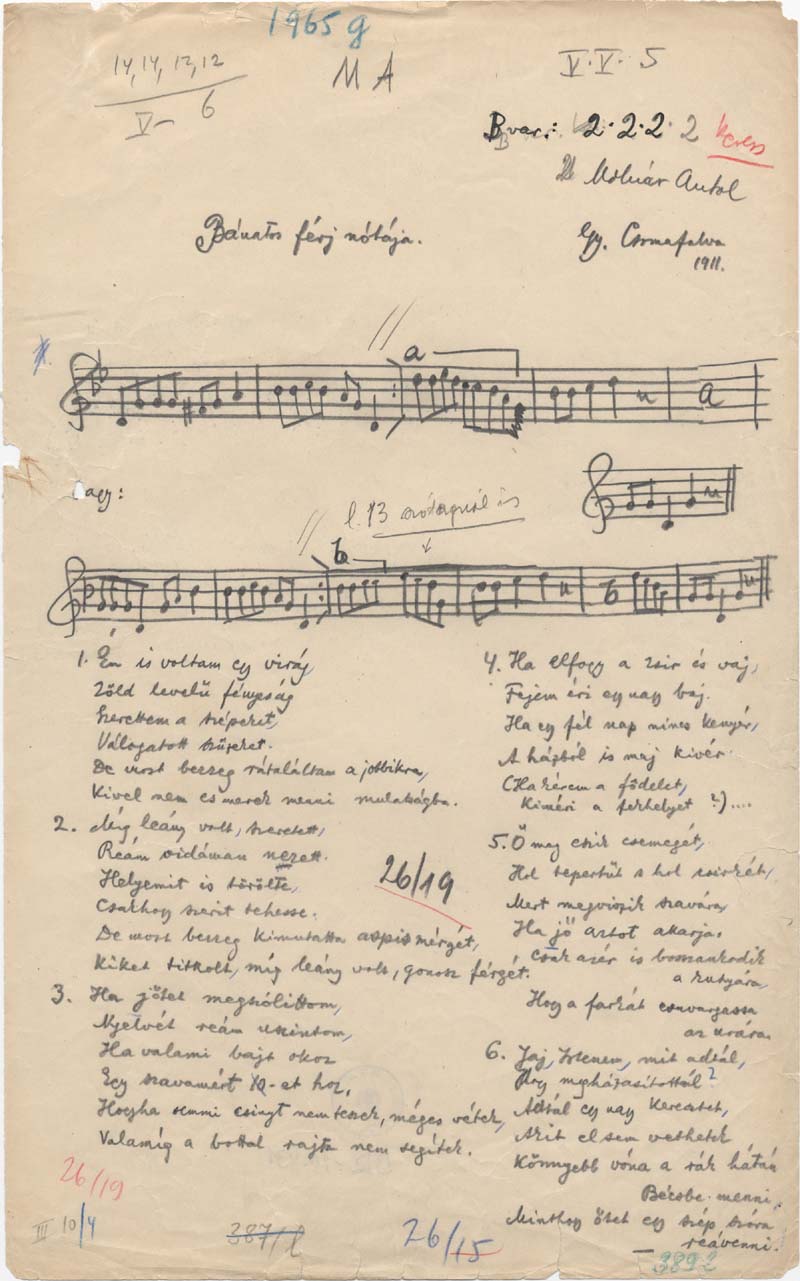 1965 g
14, 14, 13, 12
V– 6
M A
V. V. 5
B var.: 2. 2. 2. 2
Molnár Antal
Bánatos férj nótája.
Gy. Csomafalva
1911.
a
a
agy:
l. 13 is
b
b
1. Én is voltam egy virág,
Zöld levelű fényság
Szerettem a szépeket,
Válogatott szüzeket.
De most beszeg rátaláltam a jobbikra,
Kivel nem es merek menni mulatságba.
2. Míg leány volt, szeretett,
Reám vidáman nezett.
Helyemit is törölte,
Csakhogy szerit tehesse.
De most beszeg kimutatta aspis mérgét,
Kiket titkolt, míg leány volt, gonosz férgét.
3. Ha jőtet megszólittom,
Nyelvét reám
Ha valami bajt okoz
Egy szavamért X-et hoz,
Hogyha semmi csingt nem teszek, méges vétek,
Valamíg a bottal rajta nem segítek.
26/19
4. Ha elfogy a zsir és vaj,
Fejem éri egy nagy baj.
Ha egy fél nap nincs kenyér,
A házból is maj kivér.
Ha kérem a födelet,
Kiméri a ferhelyet ?)....
5. Ő meg csak csemegét,
Hol tepertüt s hol csirkét,
Mert megviszik szavára,
Ha jő aztot akarja.
Csak azér is bosszankodik
a kutyára,
Hogy a farkát csavargassa
az urára.
6. Jaj, Istenem, mit adtál,
Hogy megházasítottál?
Adtál egy nagy keresztet,
Azit el sem vethetek
Könnyebb vóna a rák hátán
Bécsbe menni,
Minthogy őtet egy szép szóra
reávenni.
26/19
III 10/4
387/l
26/15
3892